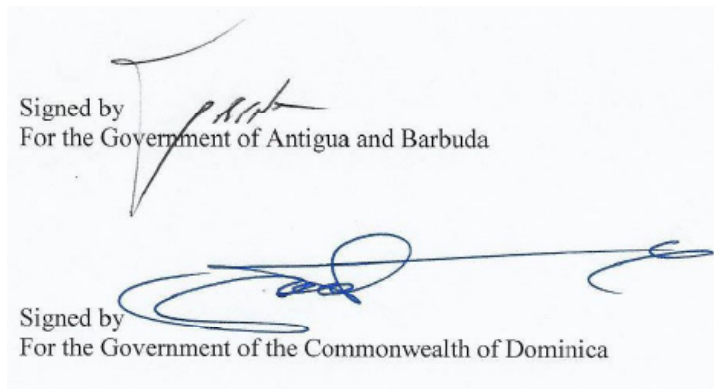 Signed by
For the Government of Antigua and Barbuda
Signed by
For the Government of the Commonwealth of Dominica